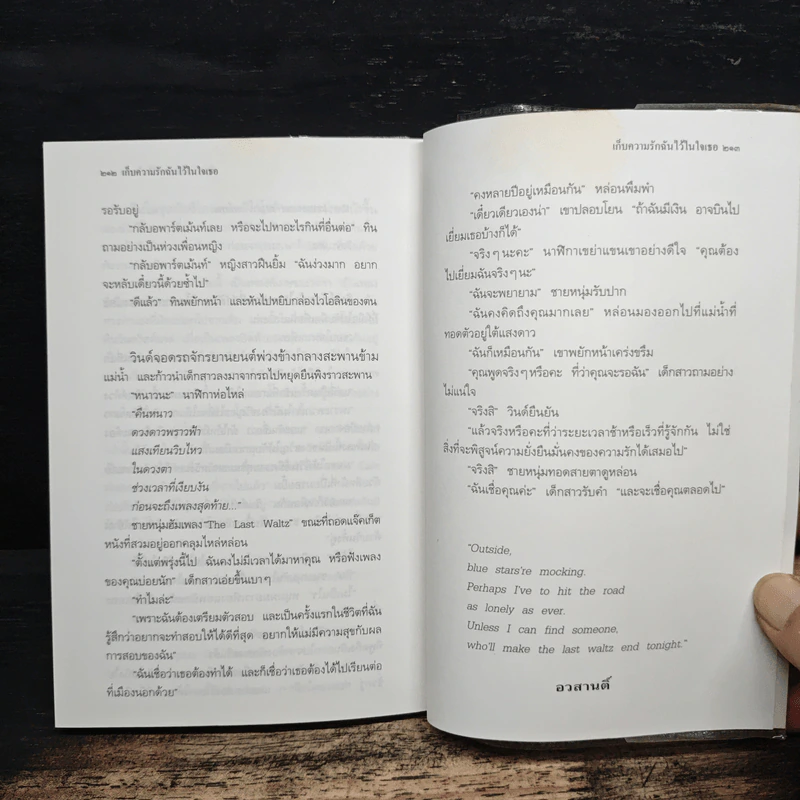 ๒๑๒ เก็บความรักฉันไว้ในใจเธอ
รอรับอยู่
"กลับอพาร์ตเม้นท์เลย หรือจะไปหาอะไรกินที่อื่นต่อ" ทิน
ถามอย่างเป็นห่วงเพื่อนหญิง
"กลับอพาร์ตเม้นท์" หญิงสาวฝืนยิ้ม "ฉันง่วงมาก อยาก
จะหลับเดี๋ยวนี้ด้วยซ้ำไป"
"ดีแล้ว" ทินพยักหน้า และหันไปหยิบกล่องไวโอลินของตน
วินด์จอดรถจักรยานยนต์พ่วงข้างกลางสะพานข้าม
แม่น้ำ และก้าวนำเด็กสาวลงมาจากรถไปหยุดยืนพิงราวสะพาน
"หนาวนะ" นาฬิกาห่อไหล่
"คืนหนาว
ดวงดาวพราวฟ้า
แสงเทียนวิบไหว
ในดวงตา
ช่วงเวลาที่เงียบงัน
ก่อนจะถึงเพลงสุดท้าย..."
ชายหนุ่มฮัมเพลง "The Last Waltz" ขณะที่ถอดแจ๊คเก็ต
หนังที่สวมอยู่ออกคลุมไหล่หล่อน
"ตั้งแต่พรุ่งนี้ไป ฉันคงไม่มีเวลาได้มาหาคุณ หรือฟังเพลง
ของคุณบ่อยนัก" เด็กสาวเอ่ยขึ้นเบาๆ
"ทำไมล่ะ"
"เพราะฉันต้องเตรียมตัวสอบ และเป็นครั้งแรกในชีวิตที่ฉัน
รู้สึกว่าอยากจะทำสอบให้ได้ดีที่สุด อยากให้แม่มีความสุขกับผล
การสอบของฉัน"
"ฉันเชื่อว่าเธอต้องทำได้ และก็เชื่อว่าเธอต้องได้ไปเรียนต่อ
ที่เมืองนอกด้วย"
เก็บความรักฉันไว้ในใจเธอ ๒๑๓
"คงหลายปีอยู่เหมือนกัน" หล่อนพึมพำ
"เดี๋ยวเดียวเองน่า" เขาปลอบโยน "ถ้าฉันมีเงิน อาจบินไป
เยี่ยมเธอบ้างก็ได้"
"จริงๆ นะคะ" นาฬิกาเขย่าแขนเขาอย่างดีใจ "คุณต้อง
ไปเยี่ยมฉันจริงๆ นะ"
"ฉันจะพยายาม" ชายหนุ่มรับปาก
"ฉันคงคิดถึงคุณมากเลย" หล่อนมองออกไปที่แม่น้ำที่
ทอดตัวอยู่ใต้แสงดาว
"ฉันก็เหมือนกัน" เขาพยักหน้าเคร่งขรึม
"คุณพูดจริงๆ หรือคะ ที่ว่าคุณจะรอฉัน" เด็กสาวถามอย่าง
ไม่แน่ใจ
"จริงสิ" วินด์ยืนยัน
"แล้วจริงหรือคะที่ว่าระยะเวลาช้าหรือเร็วที่รู้จักกัน ไม่ใช่
สิ่งที่จะพิสูจน์ความยั่งยืนมั่นคงของความรักได้เสมอไป"
"จริงสิ" ชายหนุ่มทอดสายตาดูหล่อน
"ฉันเชื่อคุณค่ะ" เด็กสาวรับคำ "และจะเชื่อคุณตลอดไป"
"Outside,
blue stars're mocking.
Perhaps I've to hit the road
as lonely as ever.
Unless I can find someone,
who'll make the last waltz end tonight."
อวสานติ์